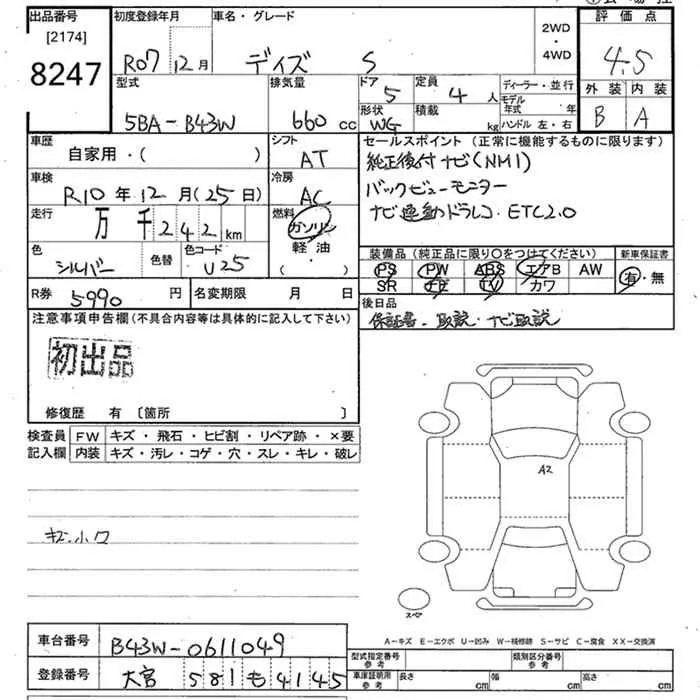 出品番号
[2174]
8247
初度登録年月
R07 12月
車名・グレード
デイズ S
2WD
・
4WD
評価点
4.5
外装 内装
B A
型式
5BA-B43W
排気量
660 cc
ドア
5
形状
WG
定員
4 人
積載
kg
ディーラー・並行
モデル年式 年
ハンドル 左・右
車歴
自家用・( )
シフト
AT
車検
R10年12月(25日)
冷房
AC
走行
万 千 2 4 2 km
燃料
ガソリン
軽・油
( )
色
シルバー
色替
色コード
U25
R券 5990 円
名変期限 月 日
セールスポイント(正常に機能するものに限ります)
純正後付ナビ(NM1)
バックビューモニター
ナビ連動ドラレコ・ETC2.0
装備品(純正品に限り○をつけてください)
PS PW ABS エアB AW
SR ナビ TV カワ
新車保証書
有・無
後日品
保証書・取説・ナビ取説
注意事項申告欄(不具合内容等は具体的に記入して下さい)
初出品
修復歴 有 〔箇所 〕
検査員 FW キズ・飛石・ヒビ割・リペア跡・×要
記入欄 内装 キズ・汚レ・コゲ・穴・スレ・キレ・破レ
キズ小口
A2
スペア
A-キズ E-エクボ U-凹み W-補修跡 S-サビ C-腐食 XX-交換済
車台番号 B43W-0611049
登録番号 大宮 581 も 4145
型式指定番号 参考
類別区分番号 参考
車庫証明用 参考 長さ cm 幅 cm 高さ cm